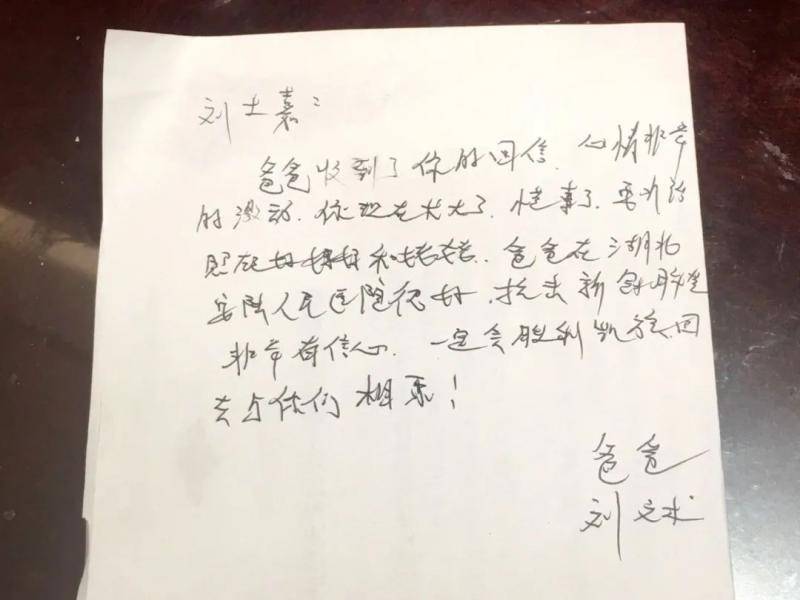 刘士嘉：
爸爸收到了你的回信，心情非常
的激动，你现在长大了，懂事了，要永远
照顾好妈妈和姥姥。爸爸在湖北
安陆人民医院很好，抗击新冠肺炎
非常有信心，一定会胜利凯旋，回
去与你们相聚！
爸爸
刘文水